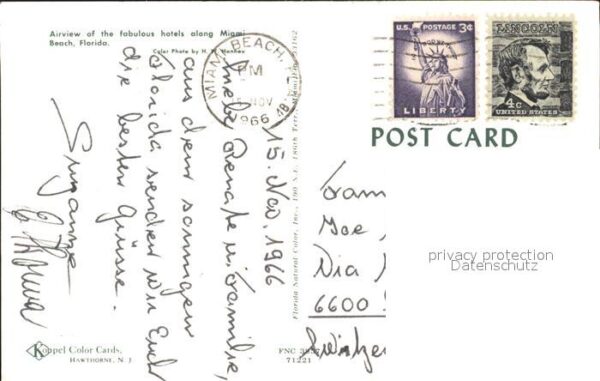 Airview of the fabulous hotels along Miami
Beach, Florida.
Color Photo by H. W. Hannau
MIAMI BEACH,
PM
15 NOV
1966
U.S. POSTAGE 3¢
LIBERTY
LINCOLN
4c
UNITED STATES
POST CARD
15. Nov. 1966
Renate u. Familie,
aus dem sonnigen
Florida senden wir Euch
die besten Grüsse.
Susanne
Fam
Via
6600
privacy protection
Datenschutz
Florida Natural Color, Inc., 190 N.E. 186th Terr., Miami, Fla. 33162
Koppel Color Cards,
HAWTHORNE, N. J.
FNC
71221